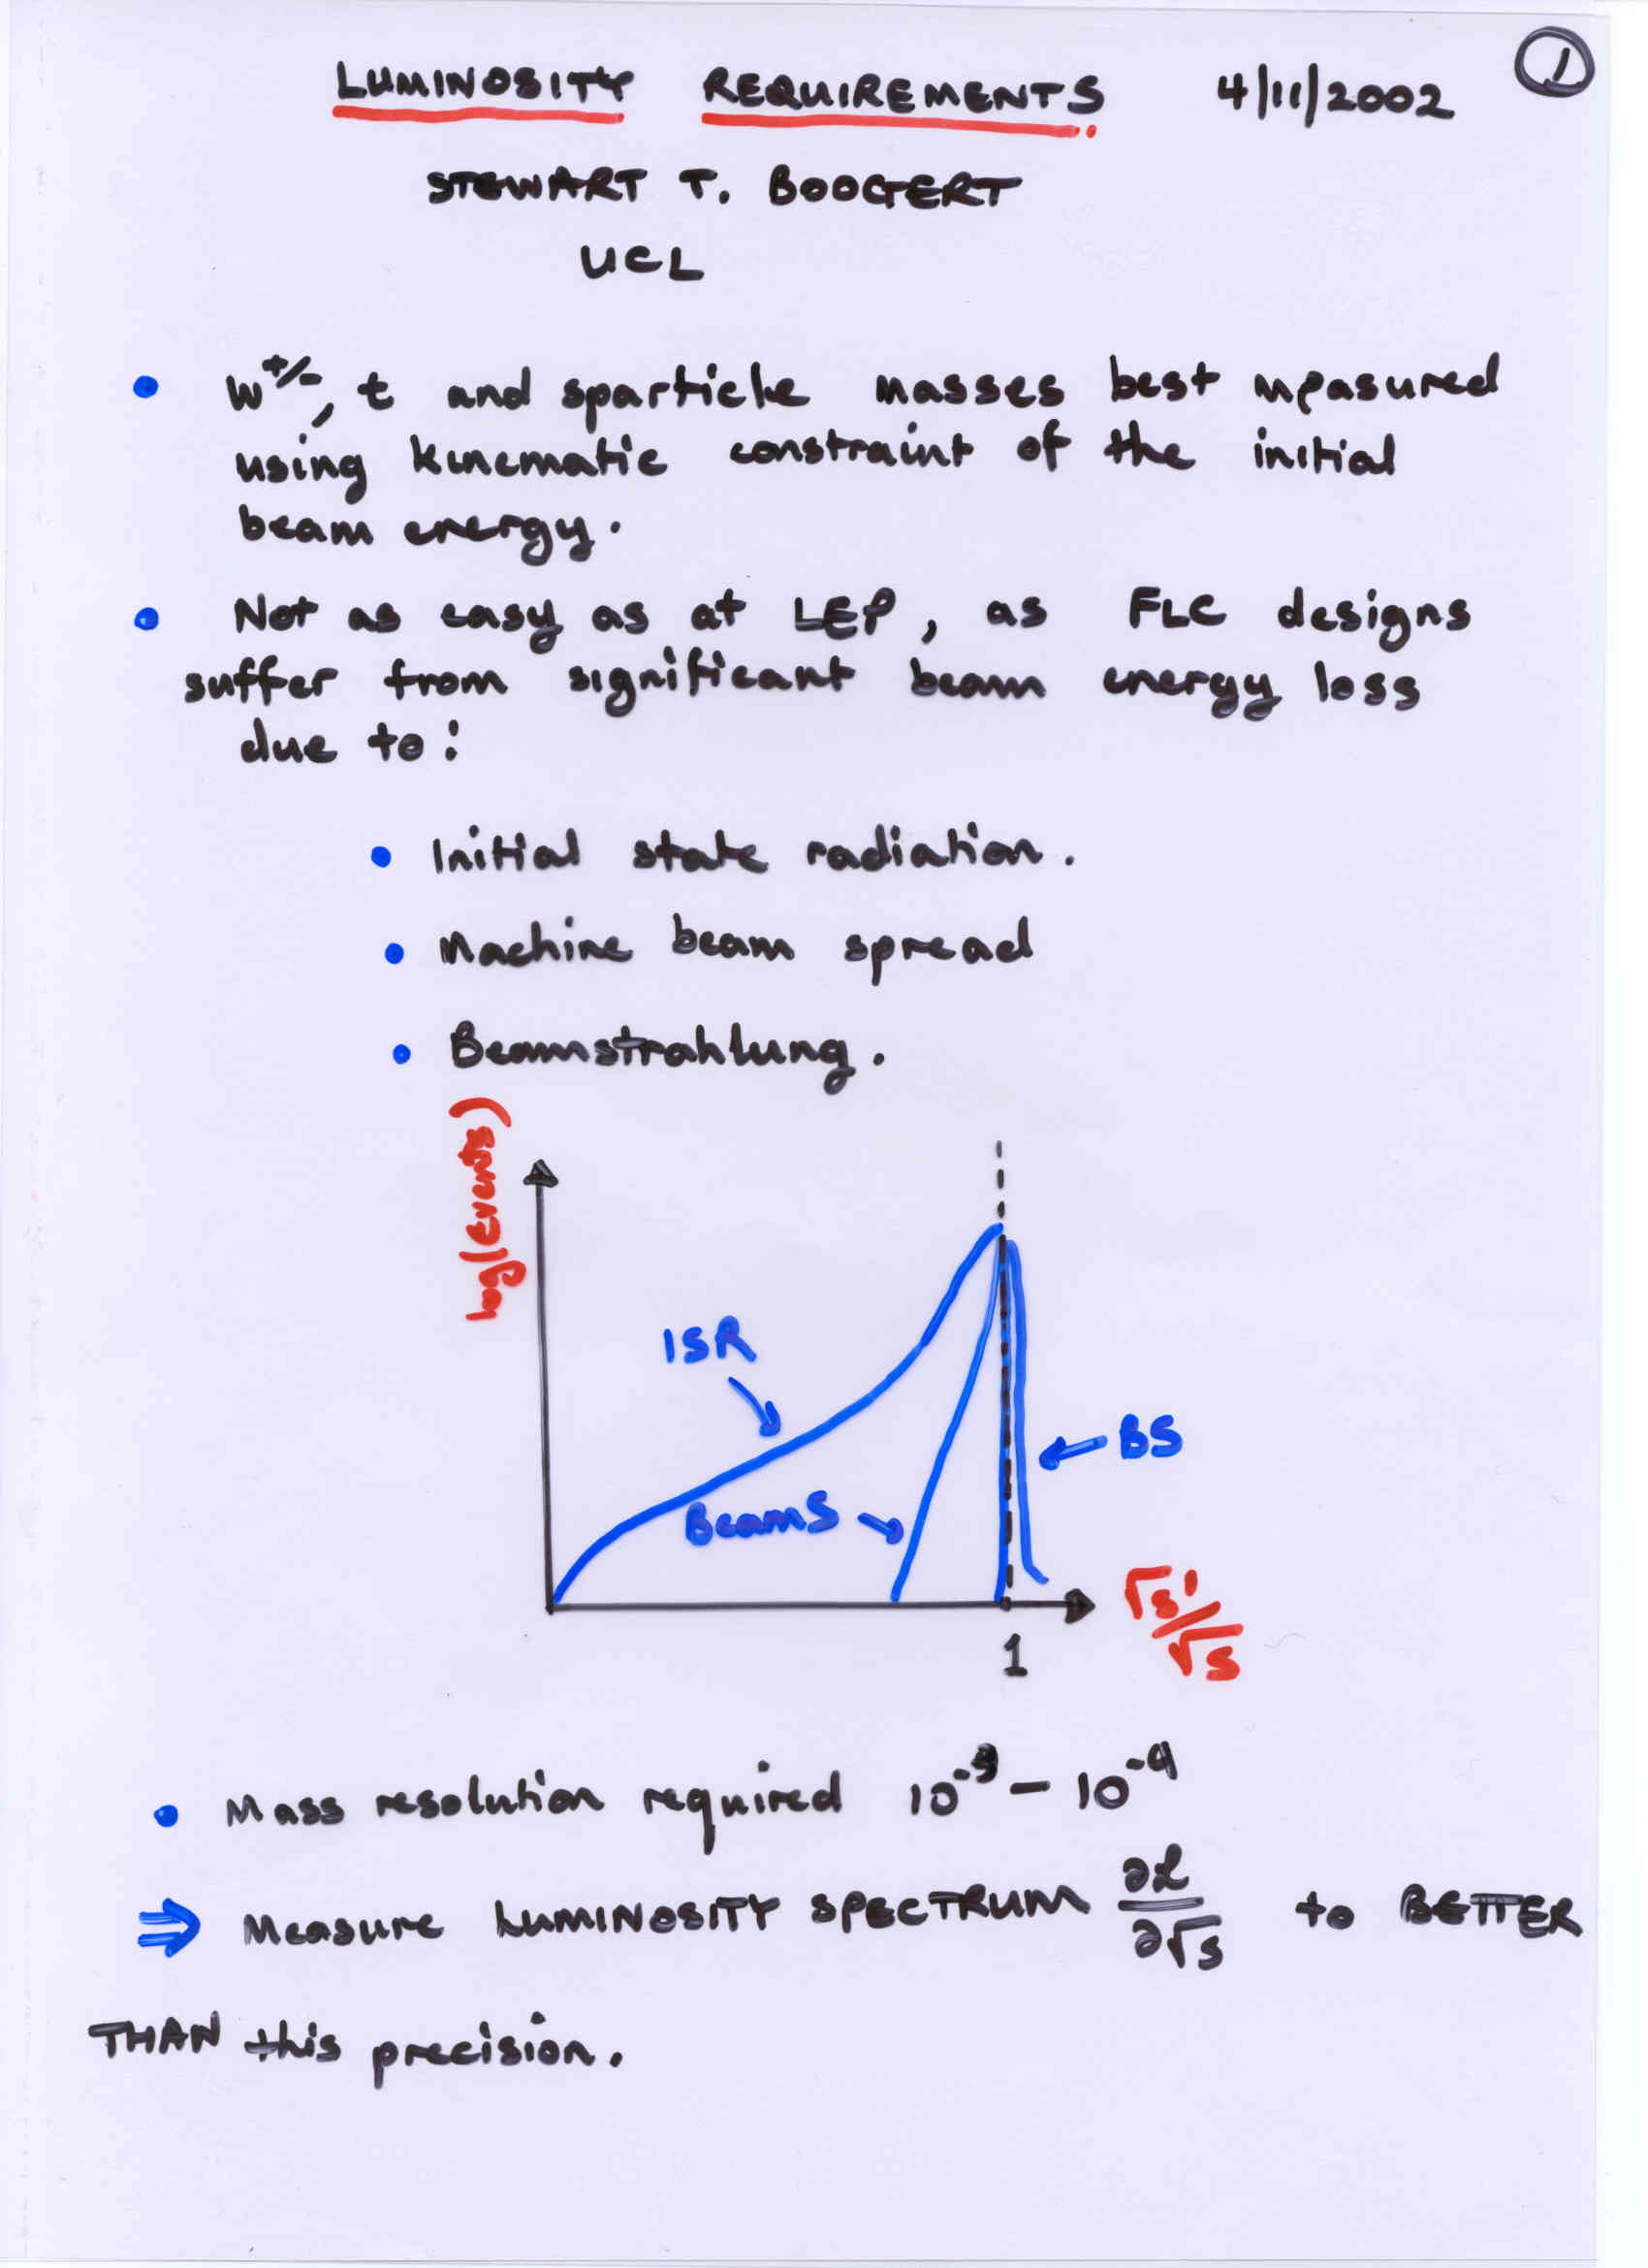 LUMINOSITY REQUIREMENTS 4/11/2002 1
STEWART T. BOOGERT
UCL
• W+/-, t and sparticle masses best measured
using kinematic constraint of the initial
beam energy.
• Not as easy as at LEP, as FLC designs
suffer from significant beam energy loss
due to:
• Initial state radiation.
• Machine beam spread
• Beamstrahlung.
log(events)
ISR
BS
BeamS
√s'/√s
1
• Mass resolution required 10⁻³ – 10⁻⁴
⇒ Measure LUMINOSITY SPECTRUM ∂ℒ/∂√s to BETTER
THAN this precision.